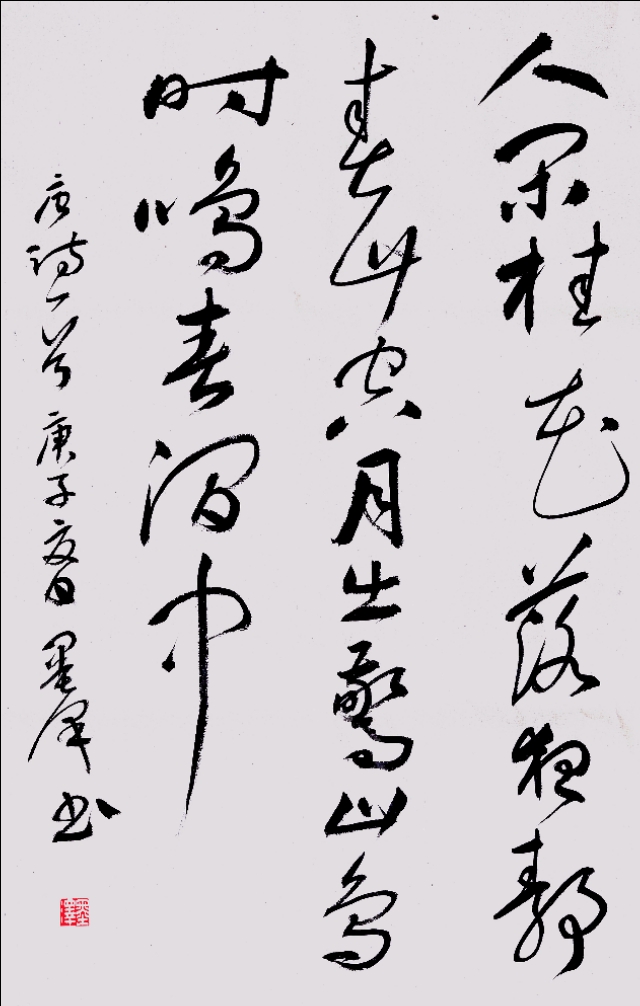 人闲桂花落夜静
春山空月出驚山鸟
时鸣春涧中
唐诗一首 庚子夏日 墨泽书
墨澤